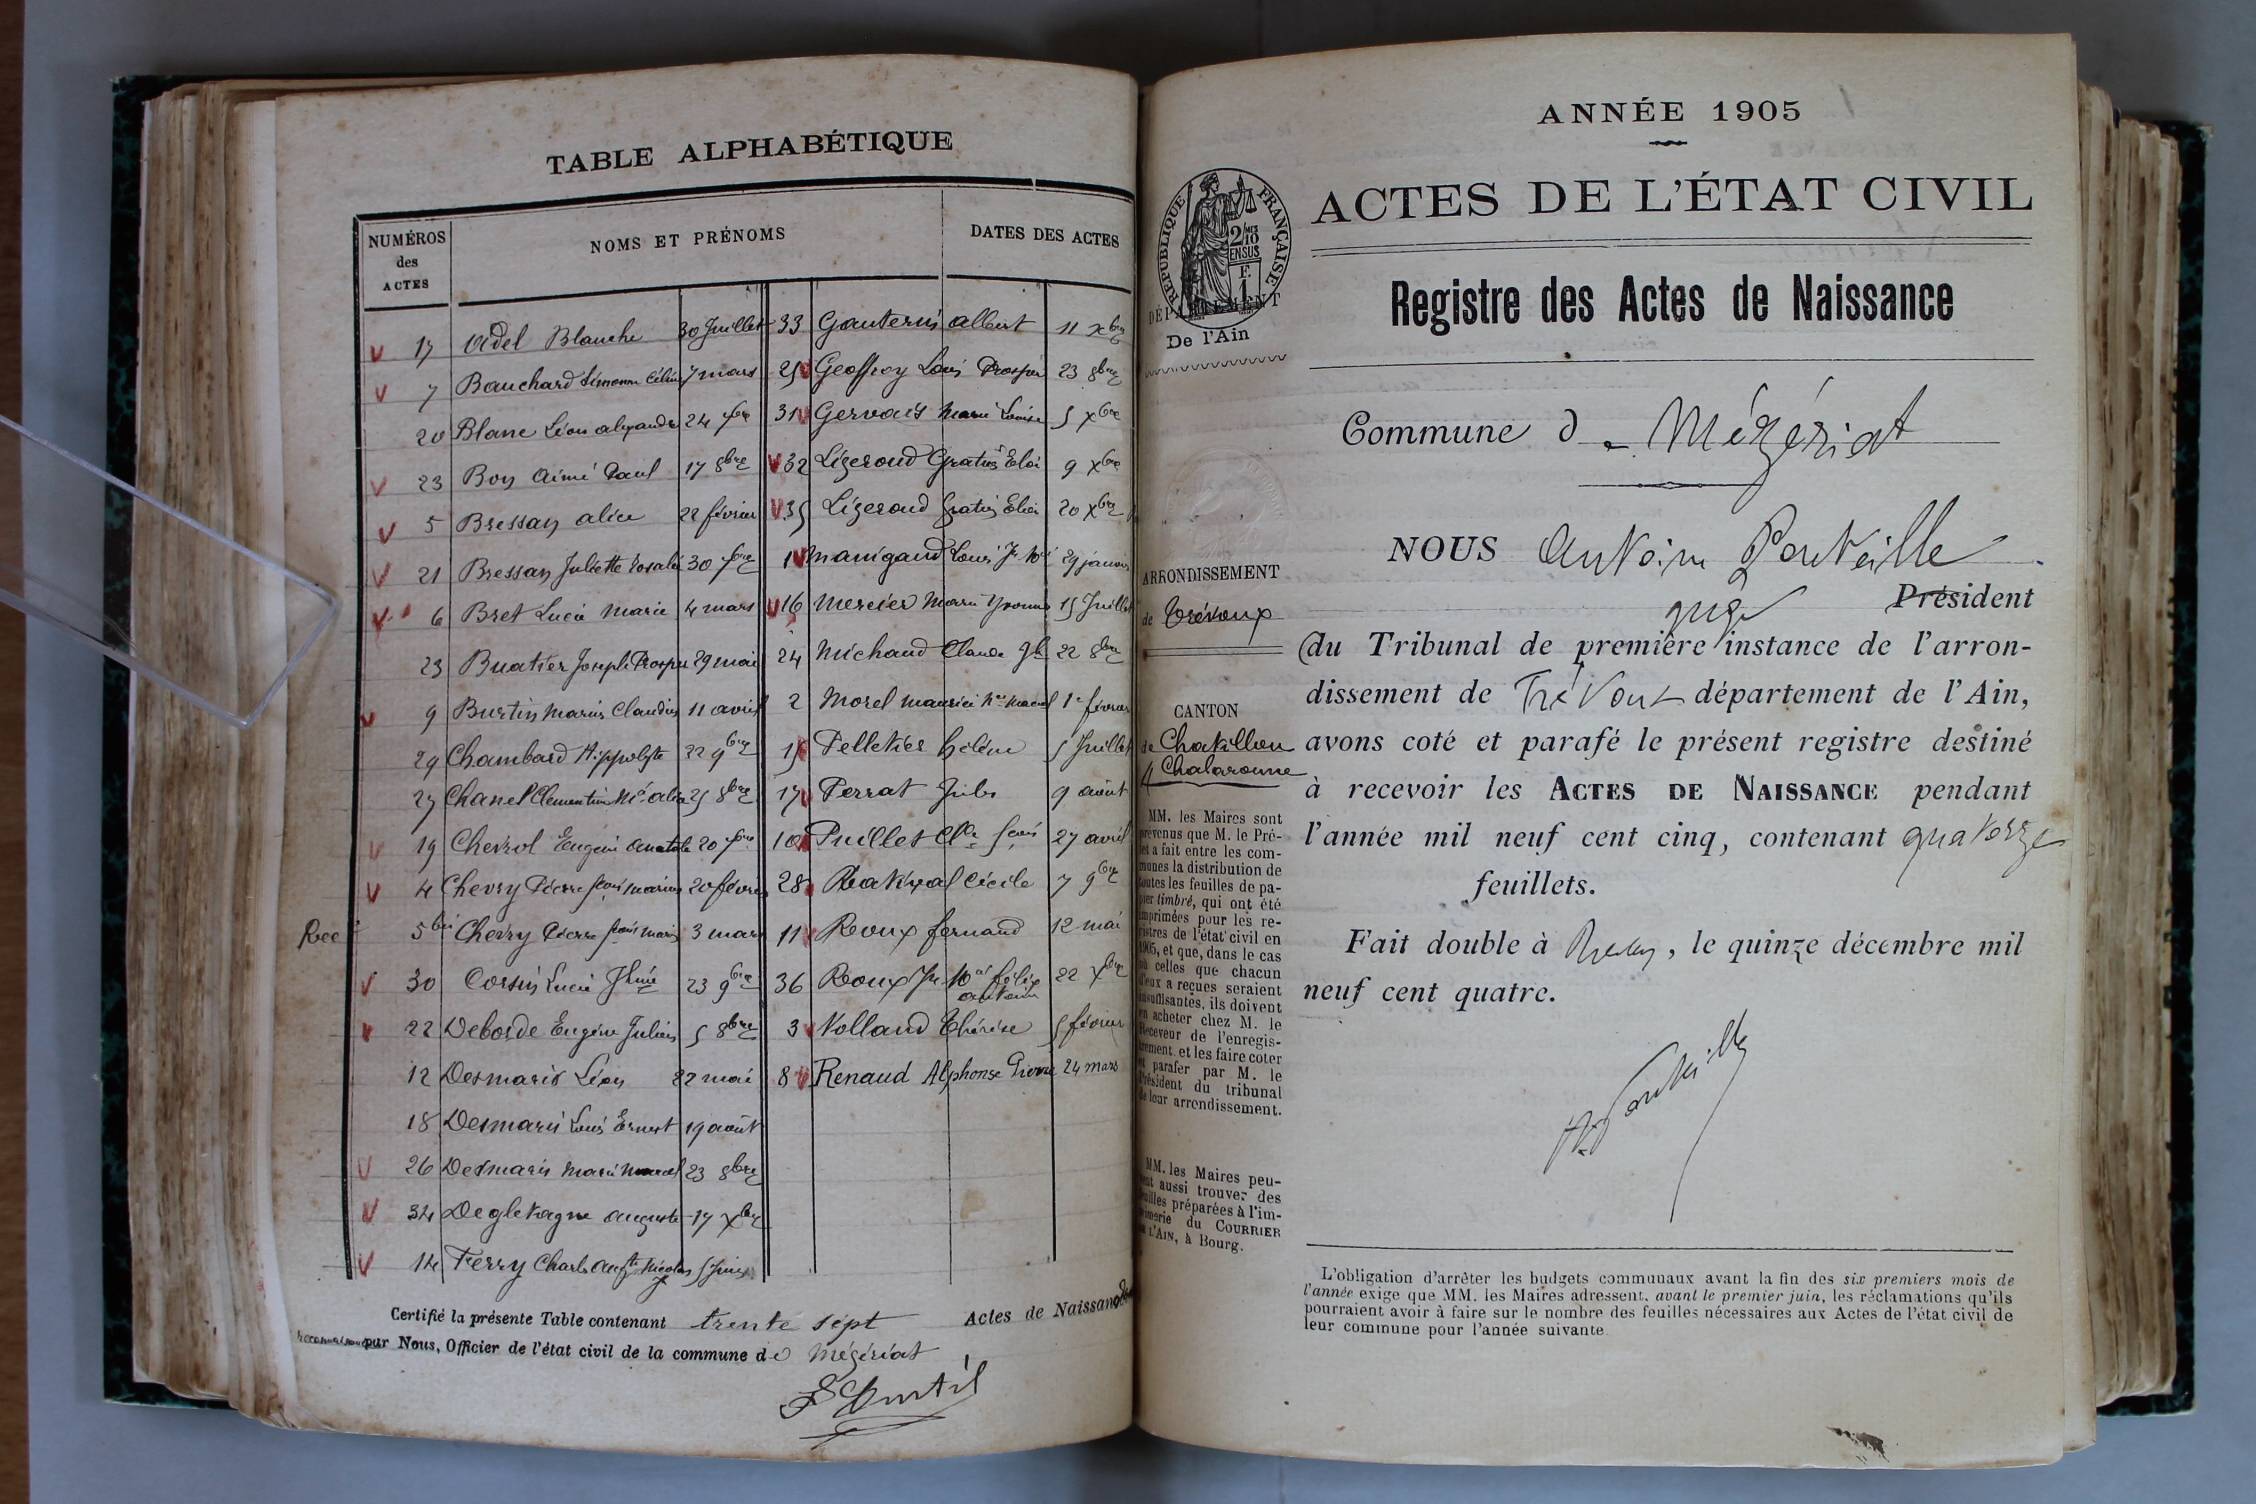 TABLE ALPHABÉTIQUE
NUMÉROS des ACTES
NOMS ET PRÉNOMS
DATES DES ACTES
17 Adel Blanche 30 Juillet
7 Bauchard Simonne Célin 7 mars
20 Blanc Léon alexandre 24 7bre
23 Bon Aimé Paul 17 8bre
5 Bressan alice 22 février
21 Bressan Juliette Rosalie 30 7bre
6 Bret Lucie Marie 4 mars
23 Buatier Joseph Prosper 29 mai
9 Burtin Marius Claudius 11 avril
29 Chambard Hippolyte 22 9bre
27 Chanel Clementine Mie alice 25 8bre
19 Chevrol Eugène Anatole 20 7bre
4 Chevry Pierre fçois marius 20 févri
Recce 5bis Chevry Pierre fçois marius 3 mars
30 Corsin Lucie Jhine 23 9bre
22 Deborde Eugène Julien 5 8bre
12 Desmaris Léon 22 mai
18 Desmaris Louis Ernest 19 août
26 Desmaris Marie Marcel 23 8bre
34 Degletagne auguste 17 xbre
14 Ferry Charles Aug.te Nicolas 5 Juin
33 Gauterin Albert 11 xbre
25 Geoffroy Louis Prosper 23 8bre
31 Gervais Marie Louise 5 xbre
32 Lizeroud Gratien Eloi 9 xbre
35 Lizeroud Gratien Eloi 20 xbre
1 Manigand Louis J. 29 janvier
16 Mercier Marie Yvonne 15 Juillet
24 Michaud Claude 22 8bre
2 Morel maurice Marcel 1er février
15 Pelletier hélène 5 Juillet
17 Perrat Jules 9 août
10 Puillet Cl. fçois 27 avril
28 Rativat Cécile 7 9bre
11 Roux fernand 12 mai
36 Roux félix antoine 22 xbre
3 Volland Thérèse 5 février
8 Renaud Alphonse Pierre 24 mars
Certifié la présente Table contenant trente sept Actes de Naissance
par Nous, Officier de l'état civil de la commune de Mézériat
ANNÉE 1905
ACTES DE L'ÉTAT CIVIL
Registre des Actes de Naissance
RÉPUBLIQUE FRANÇAISE
2/10 EN SUS
F. 1
DÉPARTEMENT
De l'Ain
Commune de Mézériat
NOUS Antoine Pouteille
Président
juge
du Tribunal de première instance de l'arron-
dissement de Trévoux département de l'Ain,
avons coté et parafé le présent registre destiné
à recevoir les ACTES DE NAISSANCE pendant
l'année mil neuf cent cinq, contenant quatorze
feuillets.
Fait double à , le quinze décembre mil
neuf cent quatre.
A. Pouteille
ARRONDISSEMENT
de Trévoux
CANTON
de Chatillon
s/ Chalaronne
MM. les Maires sont
prévenus que M. le Pré-
fet a fait entre les com-
munes la distribution de
toutes les feuilles de pa-
pier timbré, qui ont été
imprimées pour les re-
gistres de l'état civil en
1905, et que, dans le cas
où celles que chacun
d'eux a reçues seraient
insuffisantes, ils doivent
en acheter chez M. le
Receveur de l'enregis-
trement et les faire coter
et parafer par M. le
Président du tribunal
de leur arrondissement.
MM. les Maires peu-
vent aussi trouver des
feuilles préparées à l'im-
primerie du COURRIER
DE L'AIN, à Bourg.
L'obligation d'arrêter les budgets communaux avant la fin des six premiers mois de
l'année exige que MM. les Maires adressent, avant le premier juin, les réclamations qu'ils
pourraient avoir à faire sur le nombre des feuilles nécessaires aux Actes de l'état civil de
leur commune pour l'année suivante